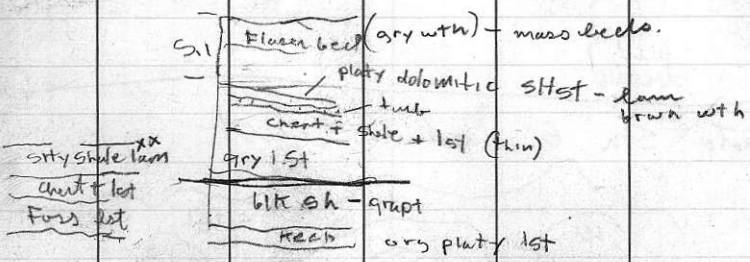 Sil
Flaser bed (gry wth) - mass beds.
platy dolomitic sltst - lam
brwn wth
turb
chert + shale + lst (thin)
slty shale lam xx
gry lst
chert + lst
blk sh - grapt
Foss lst
org platy lst